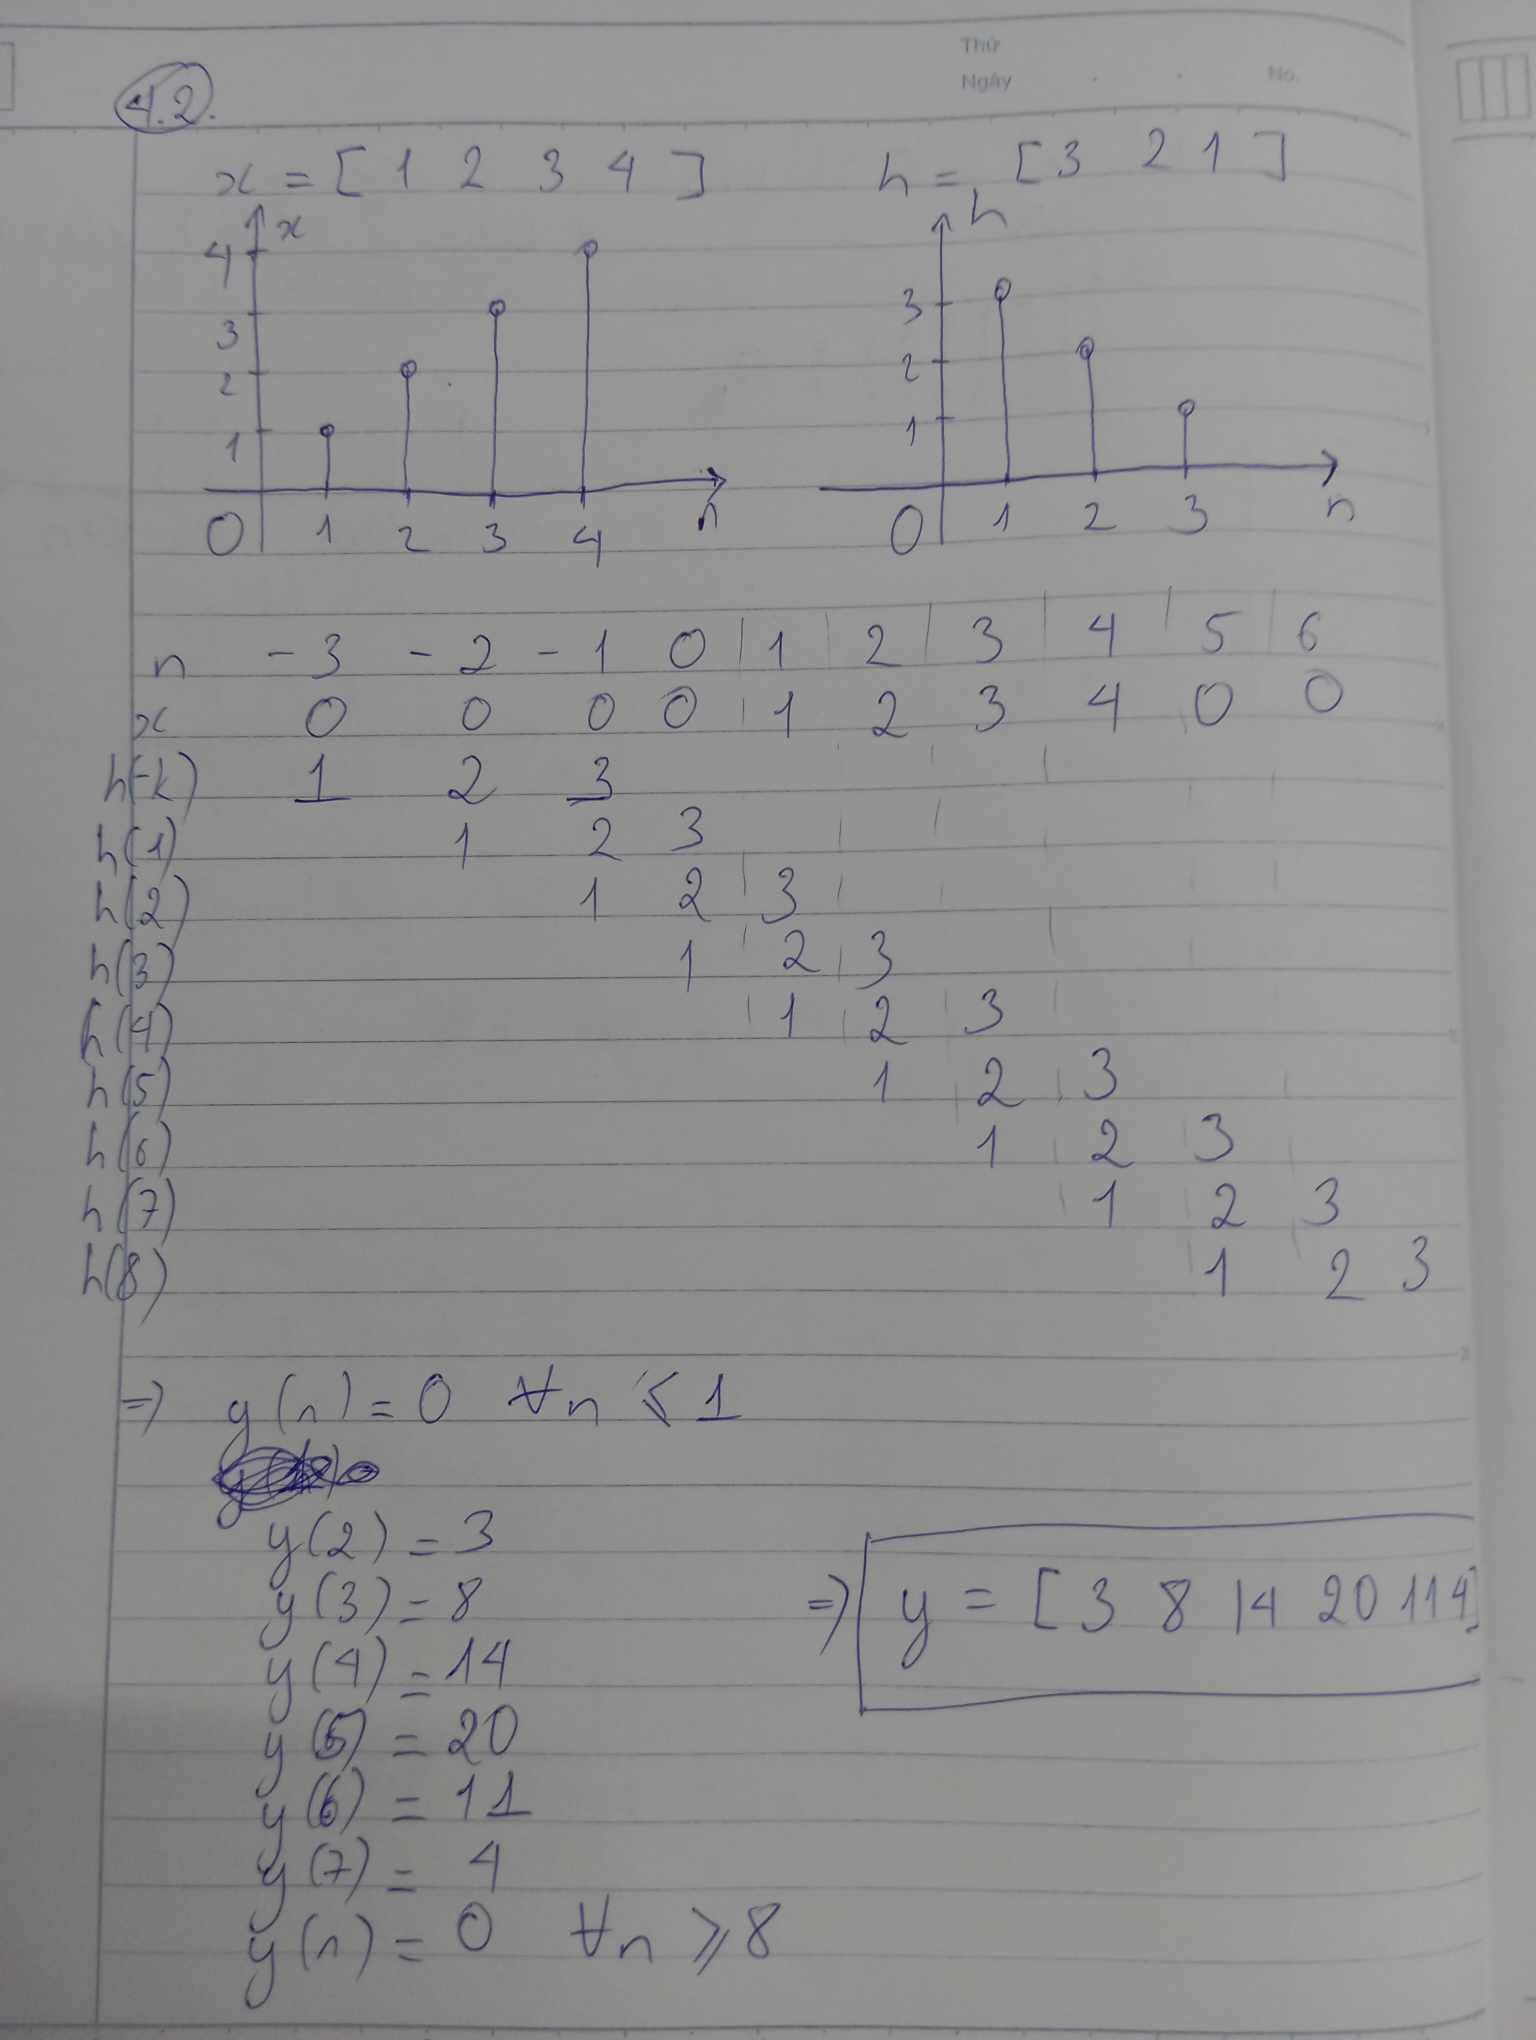 Thứ
Ngày No.
4.2.
x = [ 1 2 3 4 ] h = [ 3 2 1 ]
x h
4
3 3
2 2
1 1
0 1 2 3 4 n 0 1 2 3 n
n -3 -2 -1 0 1 2 3 4 5 6
x 0 0 0 0 1 2 3 4 0 0
h(-k) 1 2 3
h(1) 1 2 3
h(2) 1 2 3
h(3) 1 2 3
h(4) 1 2 3
h(5) 1 2 3
h(6) 1 2 3
h(7) 1 2 3
h(8) 1 2 3
=> y(n) = 0 ∀n ≤ 1
y(2) = 3
y(3) = 8 => y = [ 3 8 14 20 11 4 ]
y(4) = 14
y(5) = 20
y(6) = 11
y(7) = 4
y(n) = 0 ∀n ≥ 8